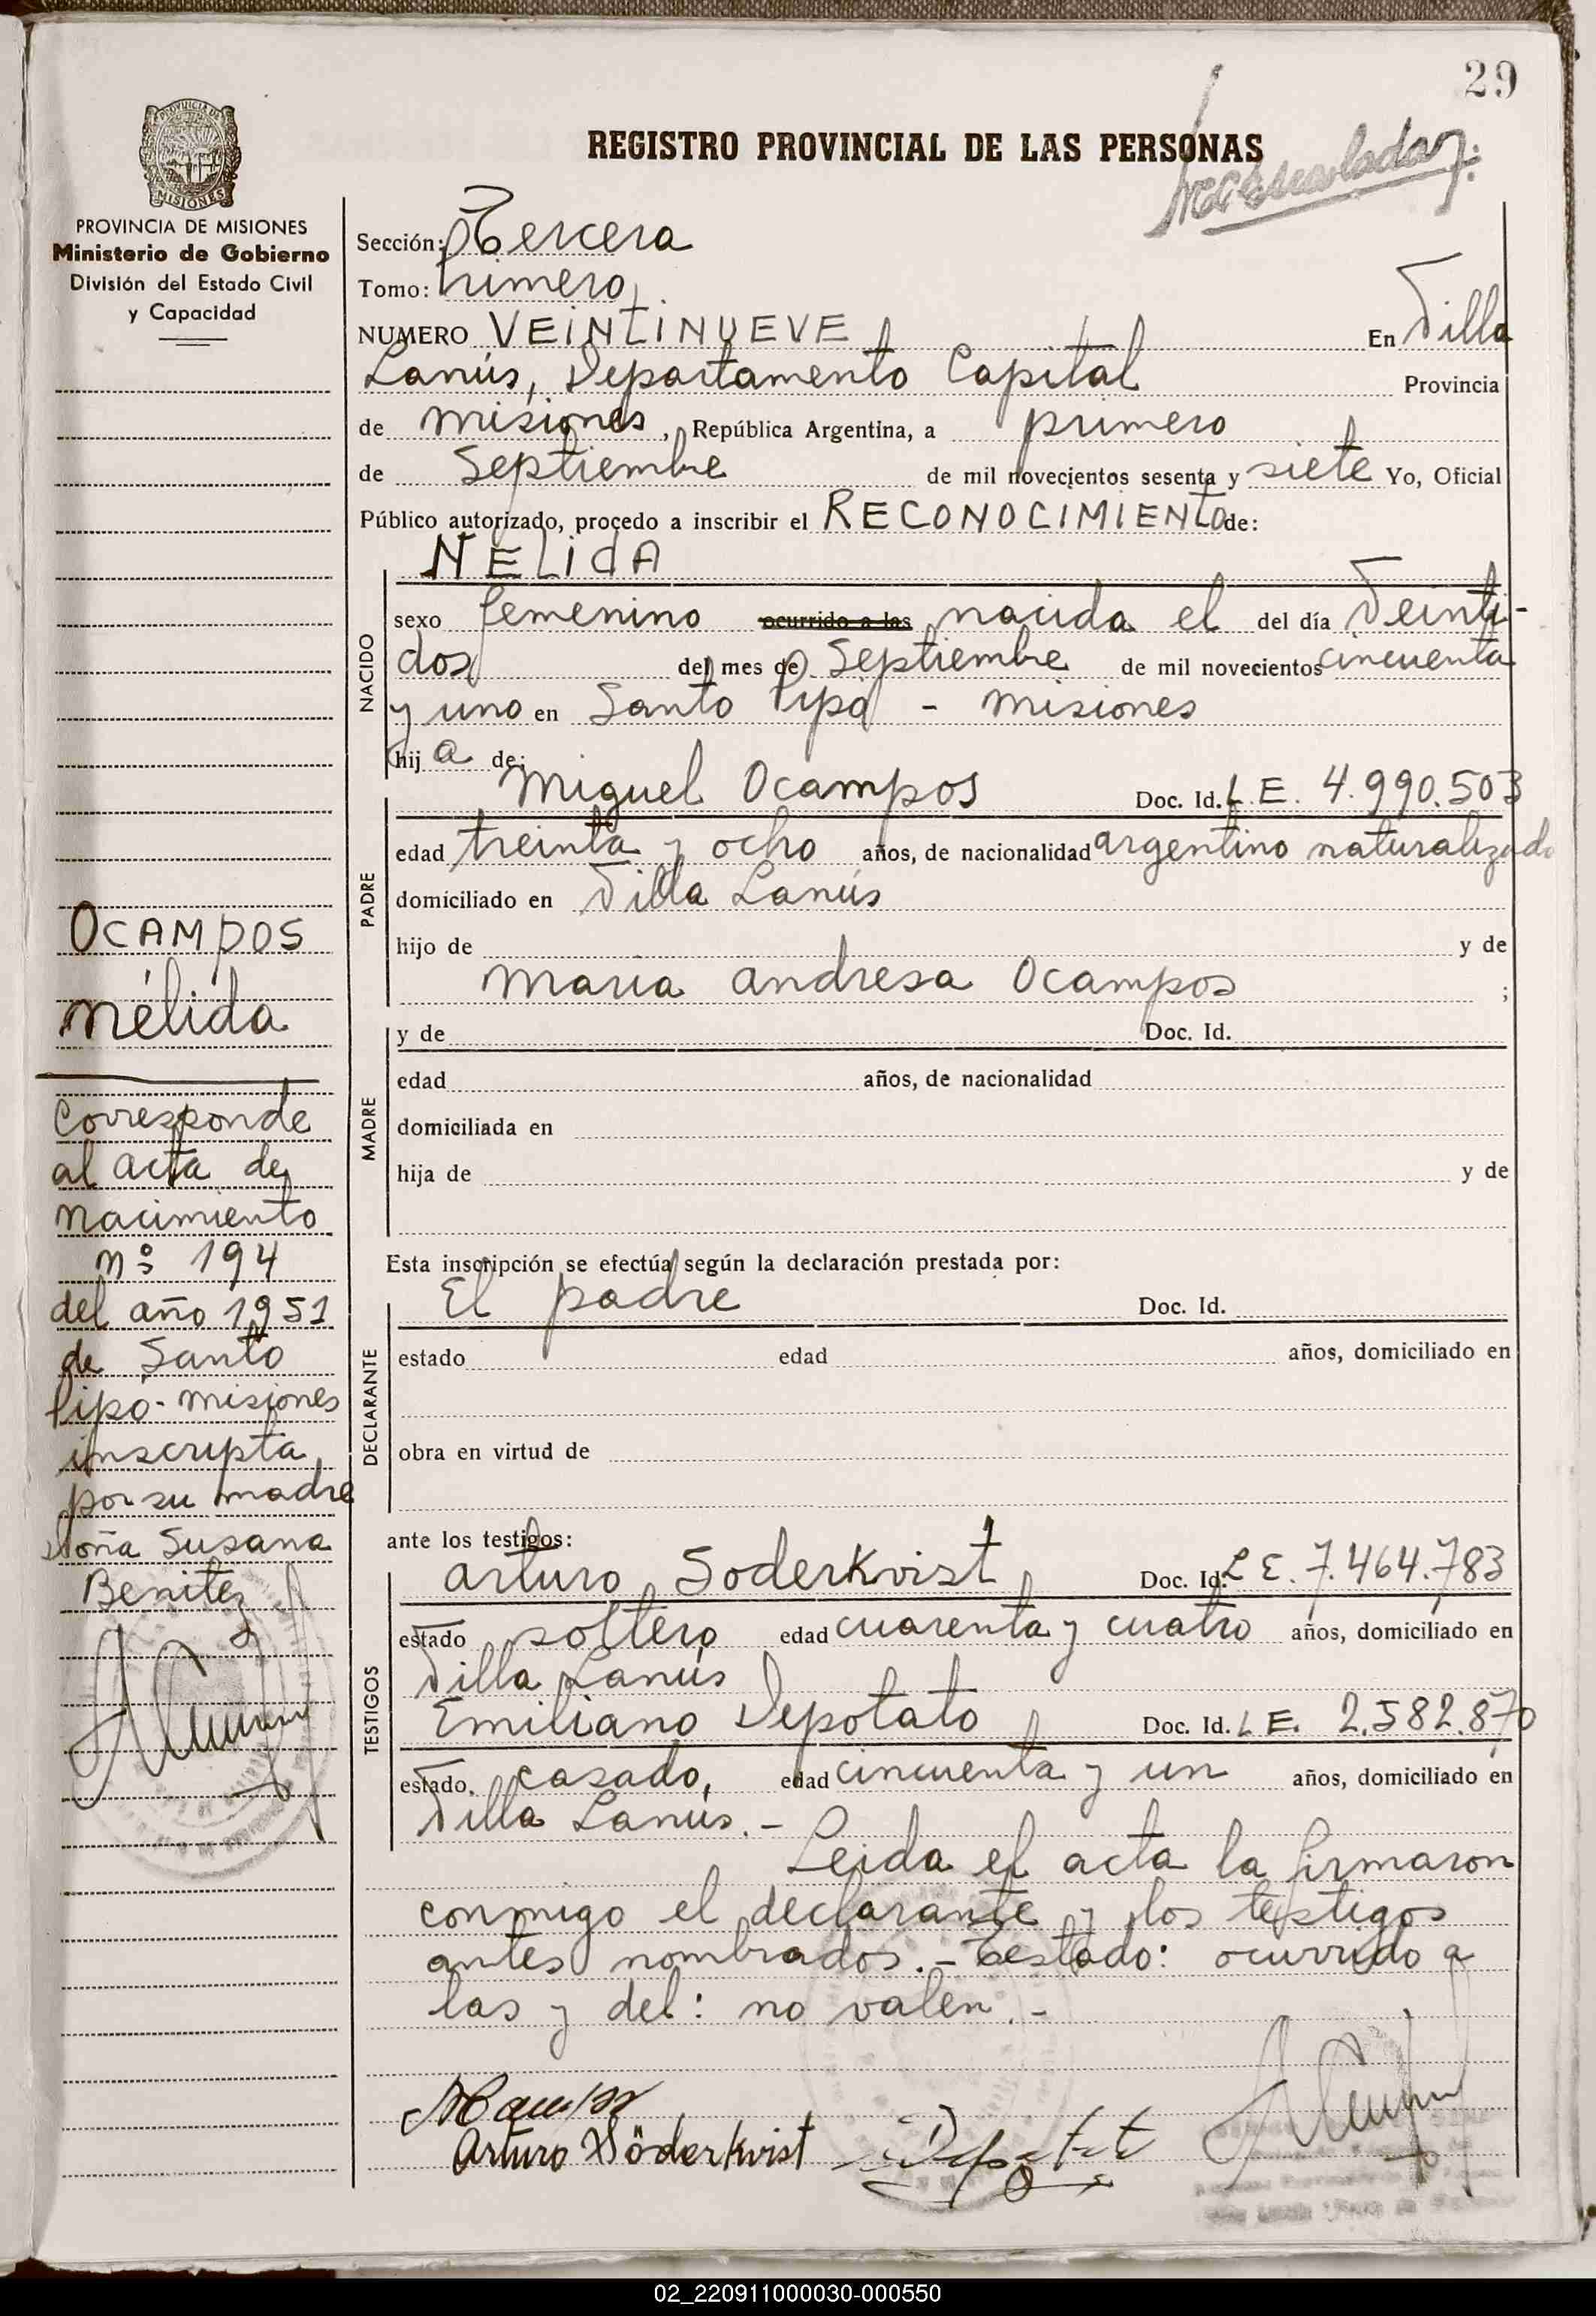 29
REGISTRO PROVINCIAL DE LAS PERSONAS
MISIONES
PROVINCIA DE MISIONES
Ministerio de Gobierno
División del Estado Civil
y Capacidad
Sección: Tercera
Tomo: Primero
NUMERO VEINTINUEVE En Villa
Lanús, Departamento Capital Provincia
de misiones, República Argentina, a primero
de Septiembre de mil novecientos sesenta y siete Yo, Oficial
Público autorizado, procedo a inscribir el RECONOCIMIENTO de:
NELIDA
NACIDO
sexo femenino ocurrido a las nacida el del día Veinti-
dos del mes de Septiembre de mil novecientos cincuenta
y uno en Santo Pipó - misiones
hij a de:
PADRE
Miguel Ocampos Doc. Id. L.E. 4.990.503
edad treinta y ocho años, de nacionalidad argentino naturalizado
domiciliado en Villa Lanús
hijo de y de
maria andresa Ocampos ;
MADRE
y de Doc. Id.
edad años, de nacionalidad
domiciliada en
hija de y de
Esta inscripción se efectúa según la declaración prestada por:
DECLARANTE
El padre Doc. Id.
estado edad años, domiciliado en
obra en virtud de
ante los testigos:
TESTIGOS
arturo Soderkvist Doc. Id. L E. 7.464.783
estado soltero edad cuarenta y cuatro años, domiciliado en
Villa Lanús
Emiliano Depotato Doc. Id. L E. 2.582.870
estado casado, edad cincuenta y un años, domiciliado en
Villa Lanús.-
Leida el acta la firmaron
conmigo el declarante y los testigos
antes nombrados.- Testado: ocurrido a
las y del: no valen.-
Arturo Söderkvist
OCAMPOS
Nélida
Corresponde
al acta de
nacimiento
nº 194
del año 1951
de Santo
Pipó - misiones
inscripta
por su madre
doña Susana
Benitez
02_220911000030-000550